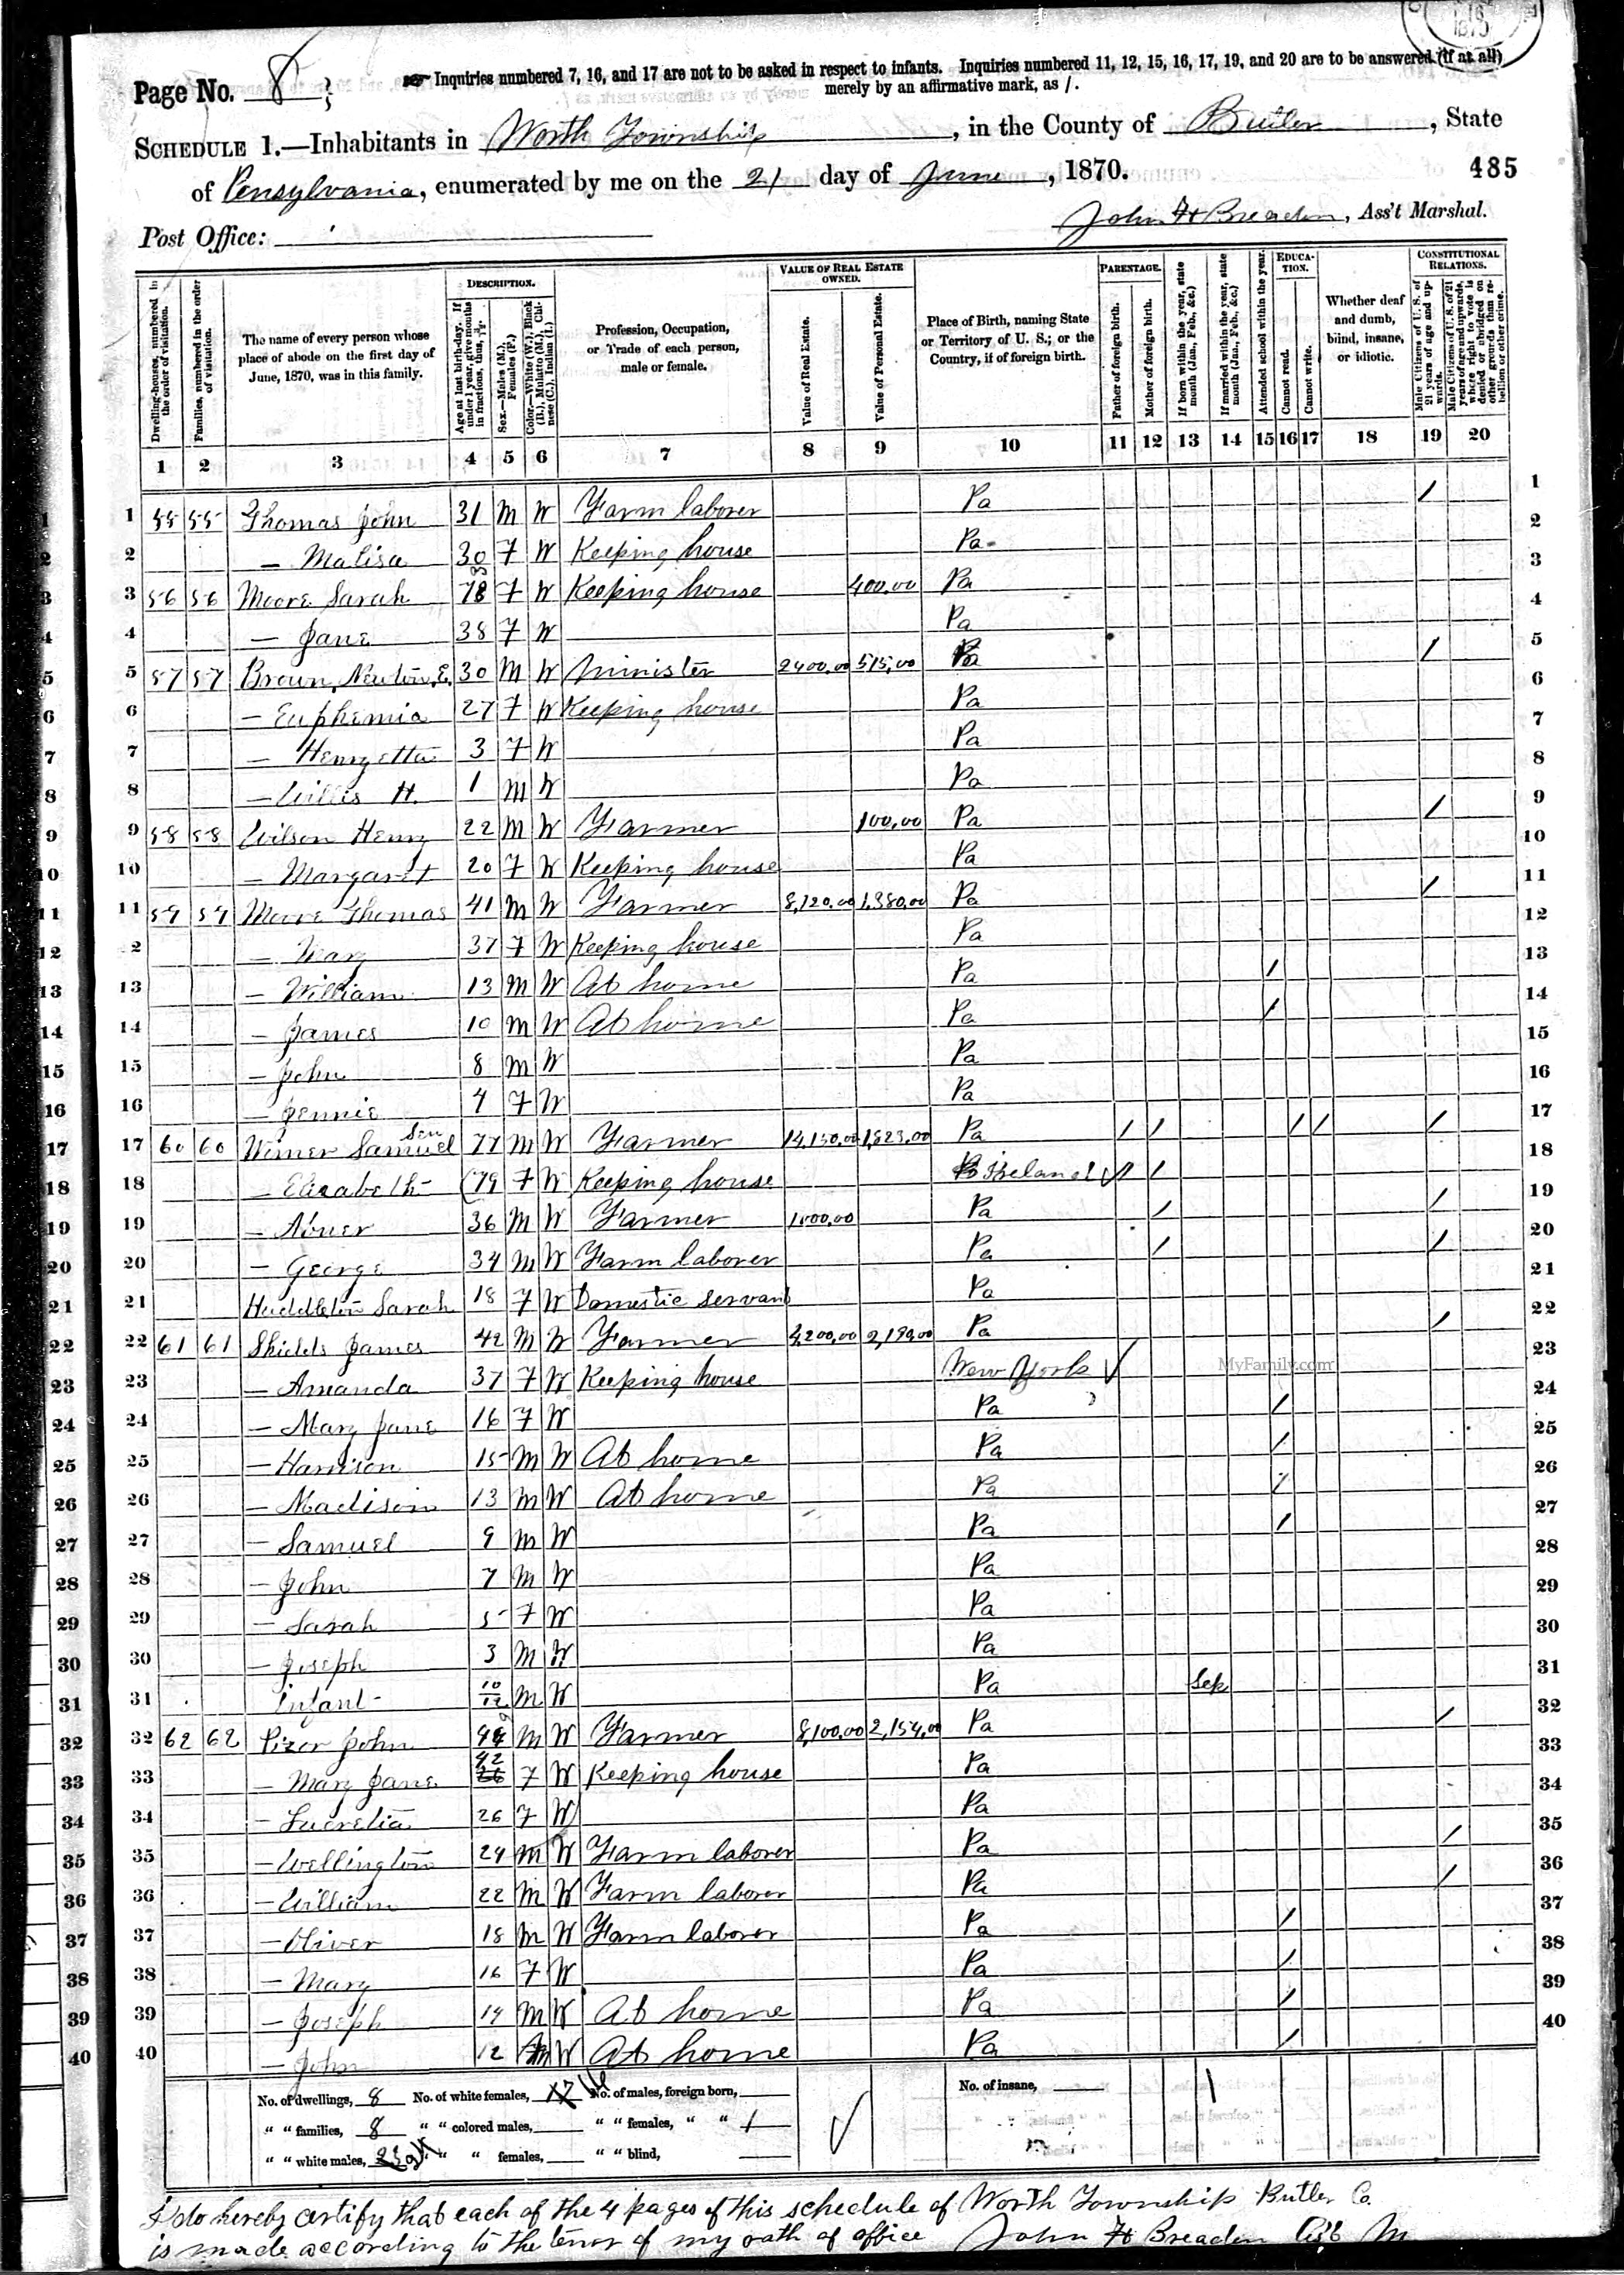 16
1875
Page No. 8
Inquiries numbered 7, 16, and 17 are not to be asked in respect to infants. Inquiries numbered 11, 12, 15, 16, 17, 19, and 20 are to be answered (if at all)
merely by an affirmative mark, as /.
SCHEDULE 1.—Inhabitants in Worth Township, in the County of Butler, State
of Pensylvania, enumerated by me on the 21 day of June, 1870. 485
Post Office: John H Breaden, Ass't Marshal.
DESCRIPTION. VALUE OF REAL ESTATE OWNED. PARENTAGE. EDUCATION. CONSTITUTIONAL RELATIONS.
Dwelling-houses, numbered in the order of visitation.
Families, numbered in the order of visitation.
The name of every person whose place of abode on the first day of June, 1870, was in this family.
Age at last birth-day. If under 1 year, give months in fractions, thus, 3/12.
Sex.—Males (M.), Females (F.)
Color.—White (W.), Black (B.), Mulatto (M.), Chinese (C.), Indian (I.)
Profession, Occupation, or Trade of each person, male or female.
Value of Real Estate.
Value of Personal Estate.
Place of Birth, naming State or Territory of U. S.; or the Country, if of foreign birth.
Father of foreign birth.
Mother of foreign birth.
If born within the year, state month (Jan., Feb., &c.)
If married within the year, state month (Jan., Feb., &c.)
Attended school within the year.
Cannot read.
Cannot write.
Whether deaf and dumb, blind, insane, or idiotic.
Male Citizens of U. S. of 21 years of age and upwards.
Male Citizens of U. S. of 21 years of age and upwards, where right to vote is denied or abridged on other grounds than rebellion or other crime.
1 2 3 4 5 6 7 8 9 10 11 12 13 14 15 16 17 18 19 20
1 55 55 Thomas John 31 M W Farm laborer Pa / 1
2 — Malisa 30 F W Keeping house Pa 2
3 56 56 Moore Sarah 78 F W Keeping house 400,00 Pa 3
4 — Jane 38 F W Pa 4
5 57 57 Brown, Newton, E. 30 M W Minister 2400,00 515,00 Pa / 5
6 — Euphemia 27 F W Keeping house Pa 6
7 — Henryetta 3 F W Pa 7
8 — Willis H. 1 M W Pa 8
9 58 58 Wilson Henry 22 M W Farmer 100,00 Pa / 9
10 — Margaret 20 F W Keeping house Pa 10
11 59 59 Moore Thomas 41 M W Farmer 8,120,00 1,380,00 Pa / 11
12 — Mary 37 F W Keeping house Pa 12
13 — William 13 M W At home Pa / 13
14 — James 10 M W At home Pa / 14
15 — John 8 M W Pa 15
16 — Jennie 4 F W Pa 16
17 60 60 Wimer Samuel Sen 77 M W Farmer 14,150,00 1,823,00 Pa / / / / / 17
18 — Elizabeth 79 F W Keeping house Ireland / / 18
19 — Abner 36 M W Farmer 1000,00 Pa / / 19
20 — George 34 M W Farm laborer Pa / / 20
21 Huddleton Sarah 18 F W Domestic servant Pa 21
22 61 61 Shields James 42 M W Farmer 4,200,00 2,190,00 Pa / 22
23 — Amanda 37 F W Keeping house New York 23
MyFamily.com
24 — Mary Jane 16 F W Pa / 24
25 — Harrison 15 M W At home Pa / 25
26 — Madison 13 M W At home Pa / 26
27 — Samuel 9 M W Pa / 27
28 — John 7 M W Pa 28
29 — Sarah 5 F W Pa 29
30 — Joseph 3 M W Pa 30
31 Infant 10/12 M W Pa Sep 31
32 62 62 Pizor John M W Farmer 8,100,00 2,154,00 Pa / 32
33 — Mary Jane 42 F W Keeping house Pa 33
34 — Lucretia 26 F W Pa 34
35 — Wellington 24 M W Farm laborer Pa / 35
36 — William 22 M W Farm laborer Pa / 36
37 — Oliver 18 M W Farm laborer Pa / 37
38 — Mary 16 F W Pa / 38
39 — Joseph 14 M W At home Pa / 39
40 — John 12 M W At home Pa / 40
No. of dwellings, 8 No. of white females, 17 No. of males, foreign born, No. of insane,
" " families, 8 " " colored males, " " females, " " 1
" " white males, 23 " " females, " " blind,
I do hereby certify that each of the 4 pages of this schedule of Worth Township Butler Co.
is made according to the tenor of my oath of office John H Breaden Ass't M